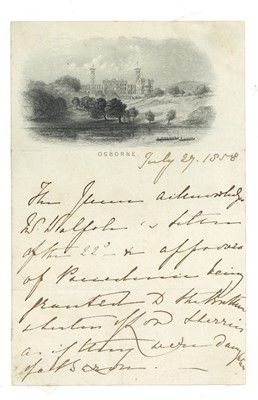 OSBORNE
July 27. 1858
The Queen acknowledges
Mr Walpole's letter
of the 22d & approves
of Precedence being
granted to the Brothers
& sisters of Lord
as if they were
of a Baron.